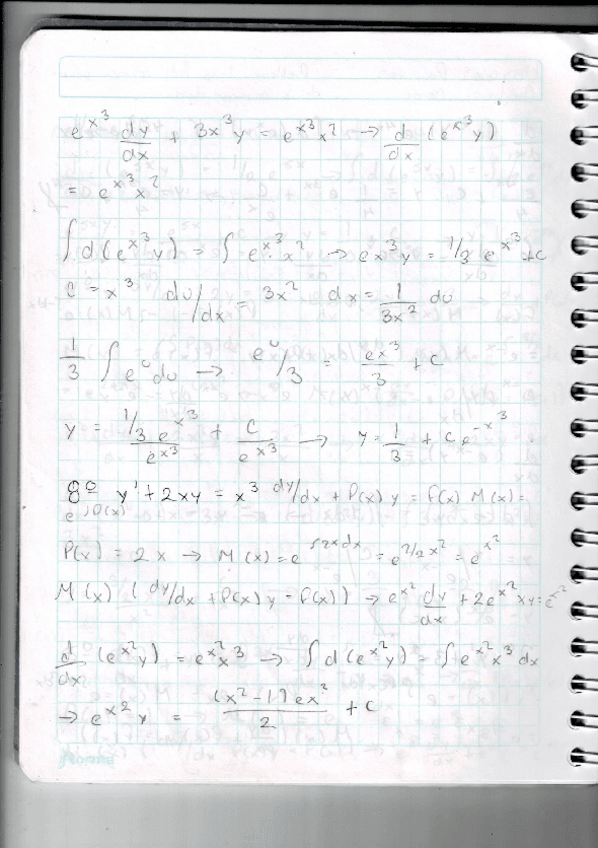 e^{x^3} dy/dx + 3x^3y = e^{x^3}x^2 → d/dx (e^{x^3}y)
= e^{x^3}x^2
∫d(e^{x^3}y) = ∫e^{x^3}·x^2 → ex^3y = 1/3 e^{x^3}+c
U = x^3 du/dx = 3x^2 dx = 1/3x^2 du
1/3 ∫e^u du → e^u/3 = ex^3/3 + C
y = 1/3 e^{x^3}/e^{x^3} + C/e^{x^3} → y = 1/3 + Ce^{-x^3}
8º y' + 2xy = x^3 dy/dx + P(x)y = f(x) M(x)=
e^{∫P(x)}
P(x) = 2x → M(x) = e^{∫2xdx} = e^{2/2x^2} = e^{x^2}
M(x) (dy/dx + P(x)y = f(x)) → e^{x^2} dy/dx + 2e^{x^2}xy = e^{x^2}
d/dx (e^{x^2}y) = e^{x^2}x^3 → ∫d(e^{x^2}y) = ∫e^{x^2}x^3 dx
→ e^{x^2}y = (x^2-1)ex^2/2 + C
Norma